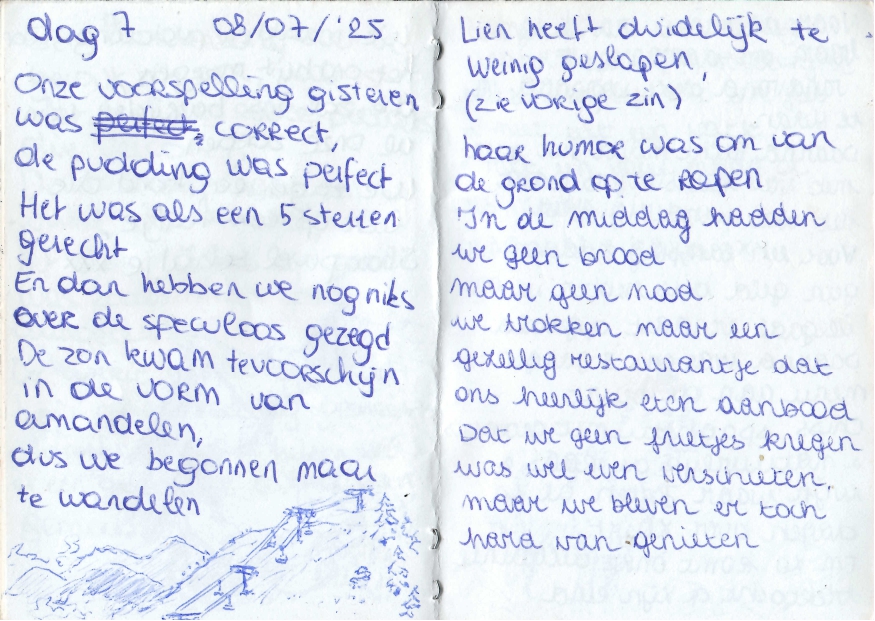 dag 7 08/07/'25
Onze voorspelling gisteren
was perfect, correct
de pudding was perfect
Het was als een 5 sterren
gerecht
En dan hebben we nog niks
over de speculoos gezegd
De zon kwam tevoorschijn
in de vorm van
amandelen,
dus we begonnen maar
te wandelen
Lien heeft duidelijk te
weinig geslapen,
(zie vorige zin)
haar humor was om van
de grond op te rapen
In de middag hadden
we geen brood
maar geen nood
we trokken naar een
gezellig restaurantje dat
ons heerlijk eten aanbood
Dat we geen frietjes kregen
was wel even verschieten,
maar we bleven er toch
hard van genieten